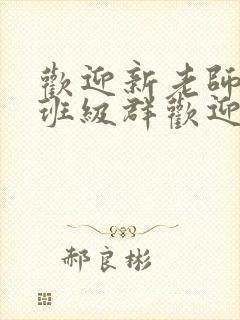 歡迎新老師
班級群歡迎
郝良彬